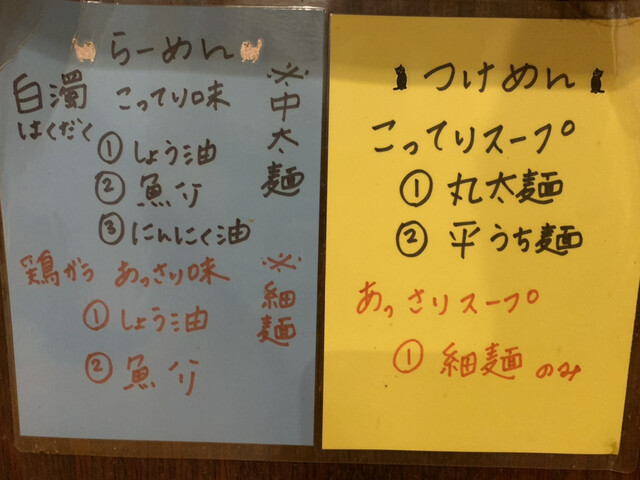 らーめん
白濁 こってり味
はくだく
①しょう油
②魚介
③にんにく油
※中太麺
鶏がら あっさり味
①しょう油
②魚介
※細麺
つけめん
こってりスープ
①丸太麺
②平うち麺
あっさりスープ
①細麺のみ